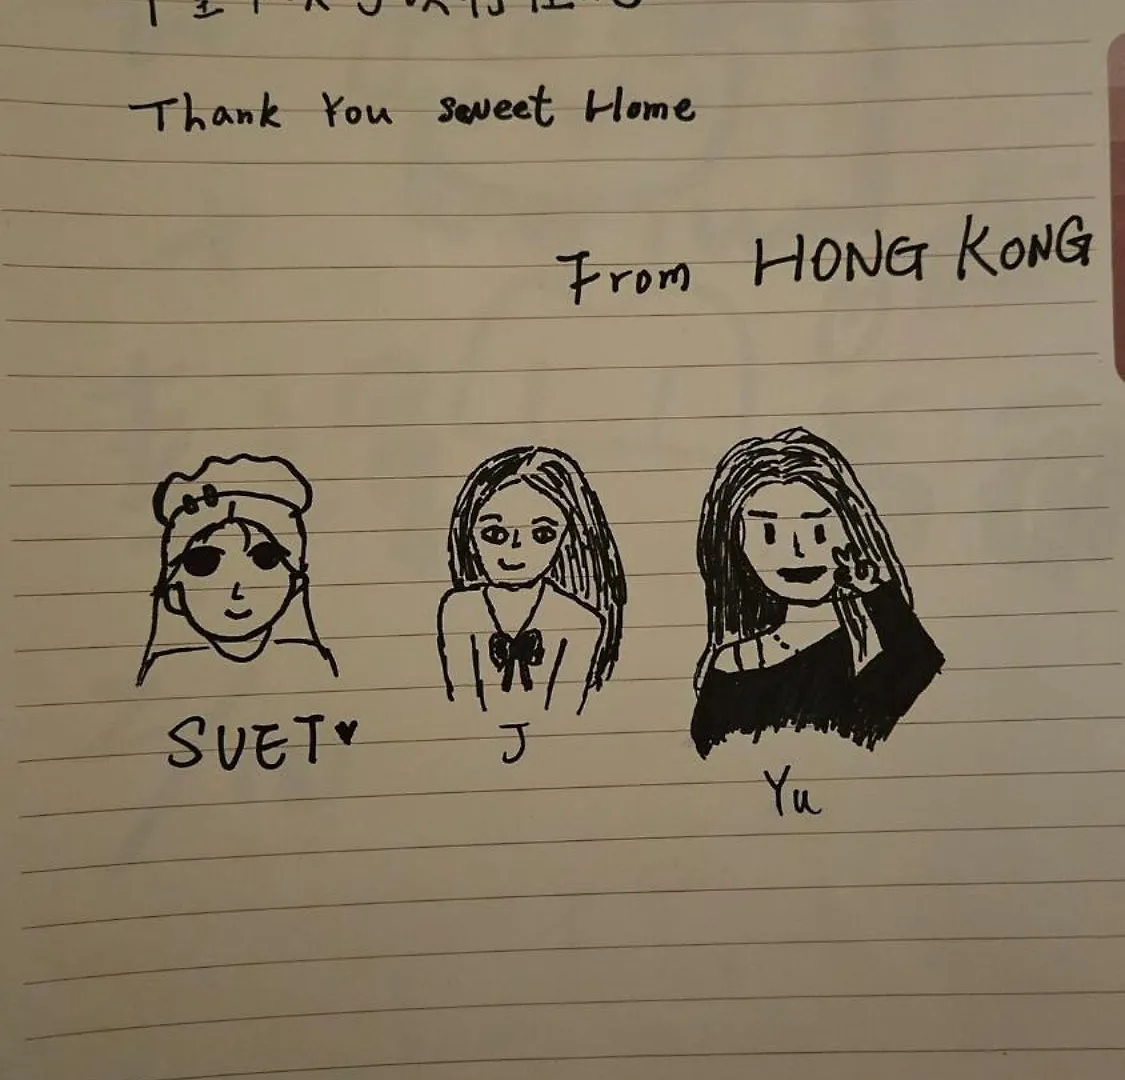 Thank You sweet Home
From HONG KONG
SUET♥
J
Yu